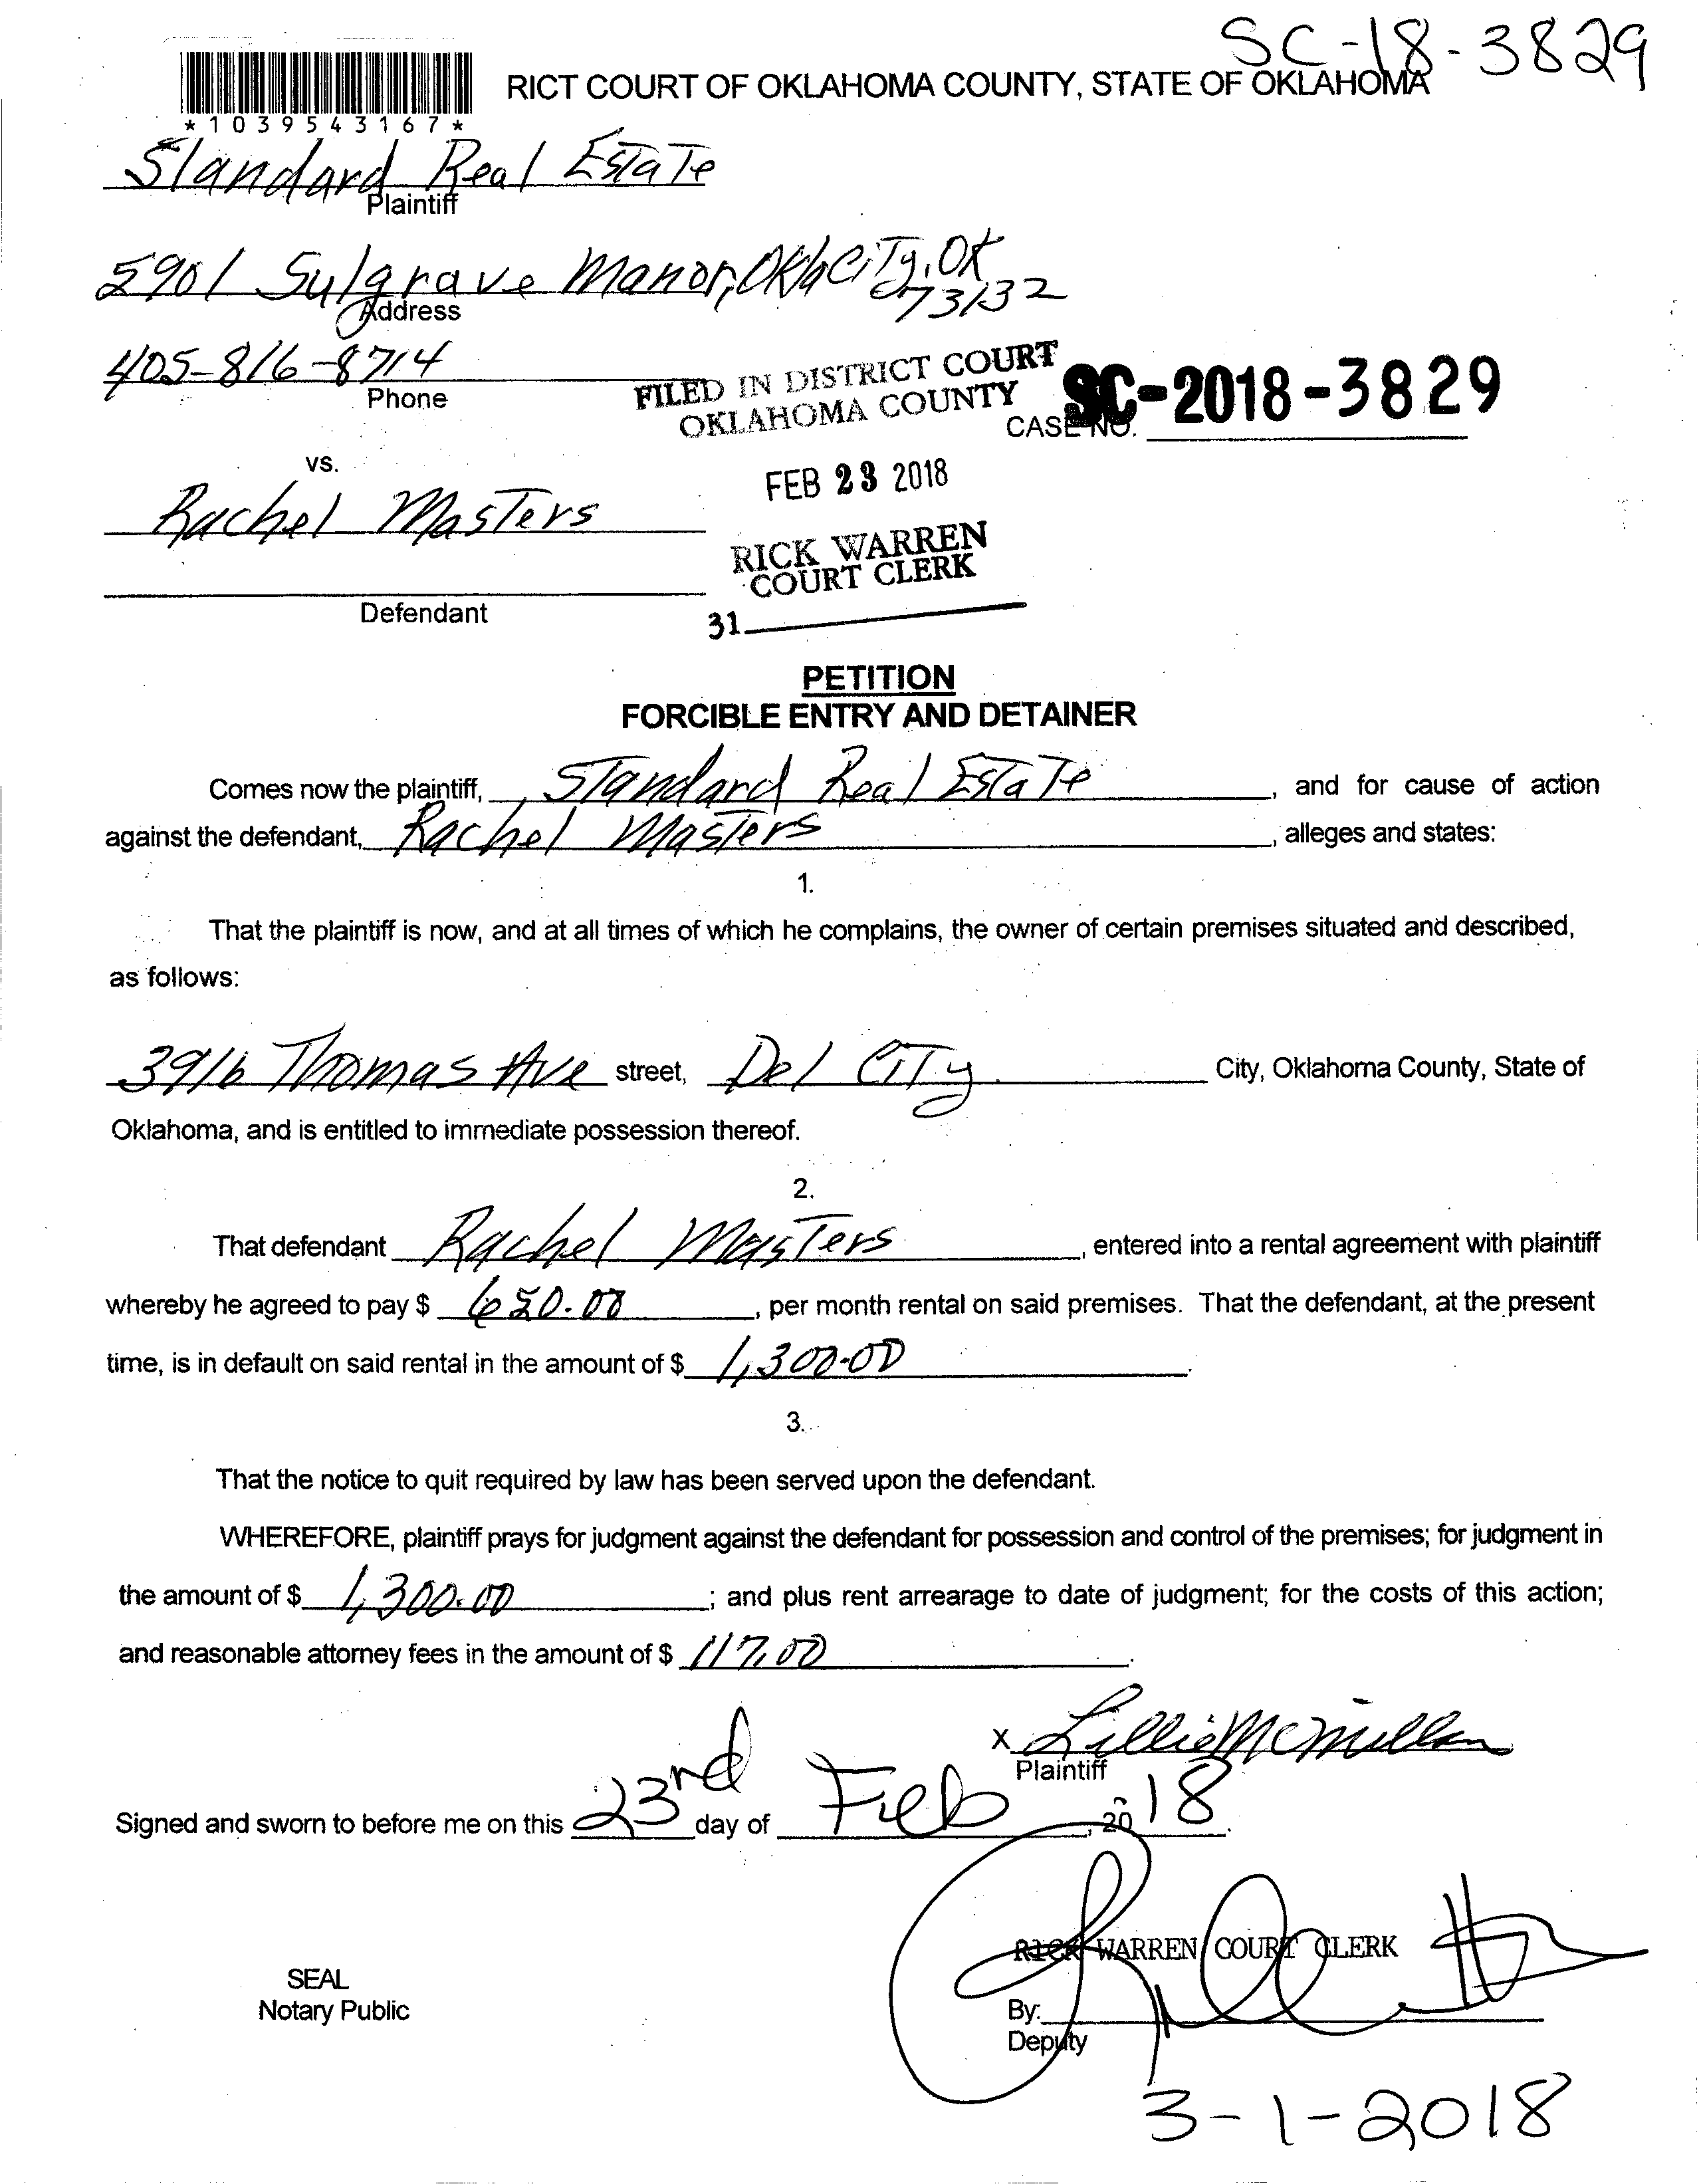 SC-18-3829
RICT COURT OF OKLAHOMA COUNTY, STATE OF OKLAHOMA
*1039543167*
Standard Real Estate
Plaintiff
5901 Sulgrave Manor, Okla City, OK
73132
Address
405-816-8714
Phone
FILED IN DISTRICT COURT
OKLAHOMA COUNTY
CASE NO. SC-2018-3829
vs.
FEB 23 2018
Rachel Masters
RICK WARREN
COURT CLERK
Defendant
31
PETITION
FORCIBLE ENTRY AND DETAINER
Comes now the plaintiff, Standard Real Estate, and for cause of action
against the defendant, Rachel Masters, alleges and states:
1.
That the plaintiff is now, and at all times of which he complains, the owner of certain premises situated and described,
as follows:
3916 Thomas Ave street, Del City City, Oklahoma County, State of
Oklahoma, and is entitled to immediate possession thereof.
2.
That defendant Rachel Masters, entered into a rental agreement with plaintiff
whereby he agreed to pay $ 650.00, per month rental on said premises. That the defendant, at the present
time, is in default on said rental in the amount of $ 1,300.00.
3.
That the notice to quit required by law has been served upon the defendant.
WHEREFORE, plaintiff prays for judgment against the defendant for possession and control of the premises; for judgment in
the amount of $ 1,300.00; and plus rent arrearage to date of judgment; for the costs of this action;
and reasonable attorney fees in the amount of $ 117.00.
x Lillie McMillan
Plaintiff
Signed and sworn to before me on this 23rd day of Feb, 2018.
RICK WARREN COURT CLERK
SEAL
Notary Public
By:
Deputy
3-1-2018